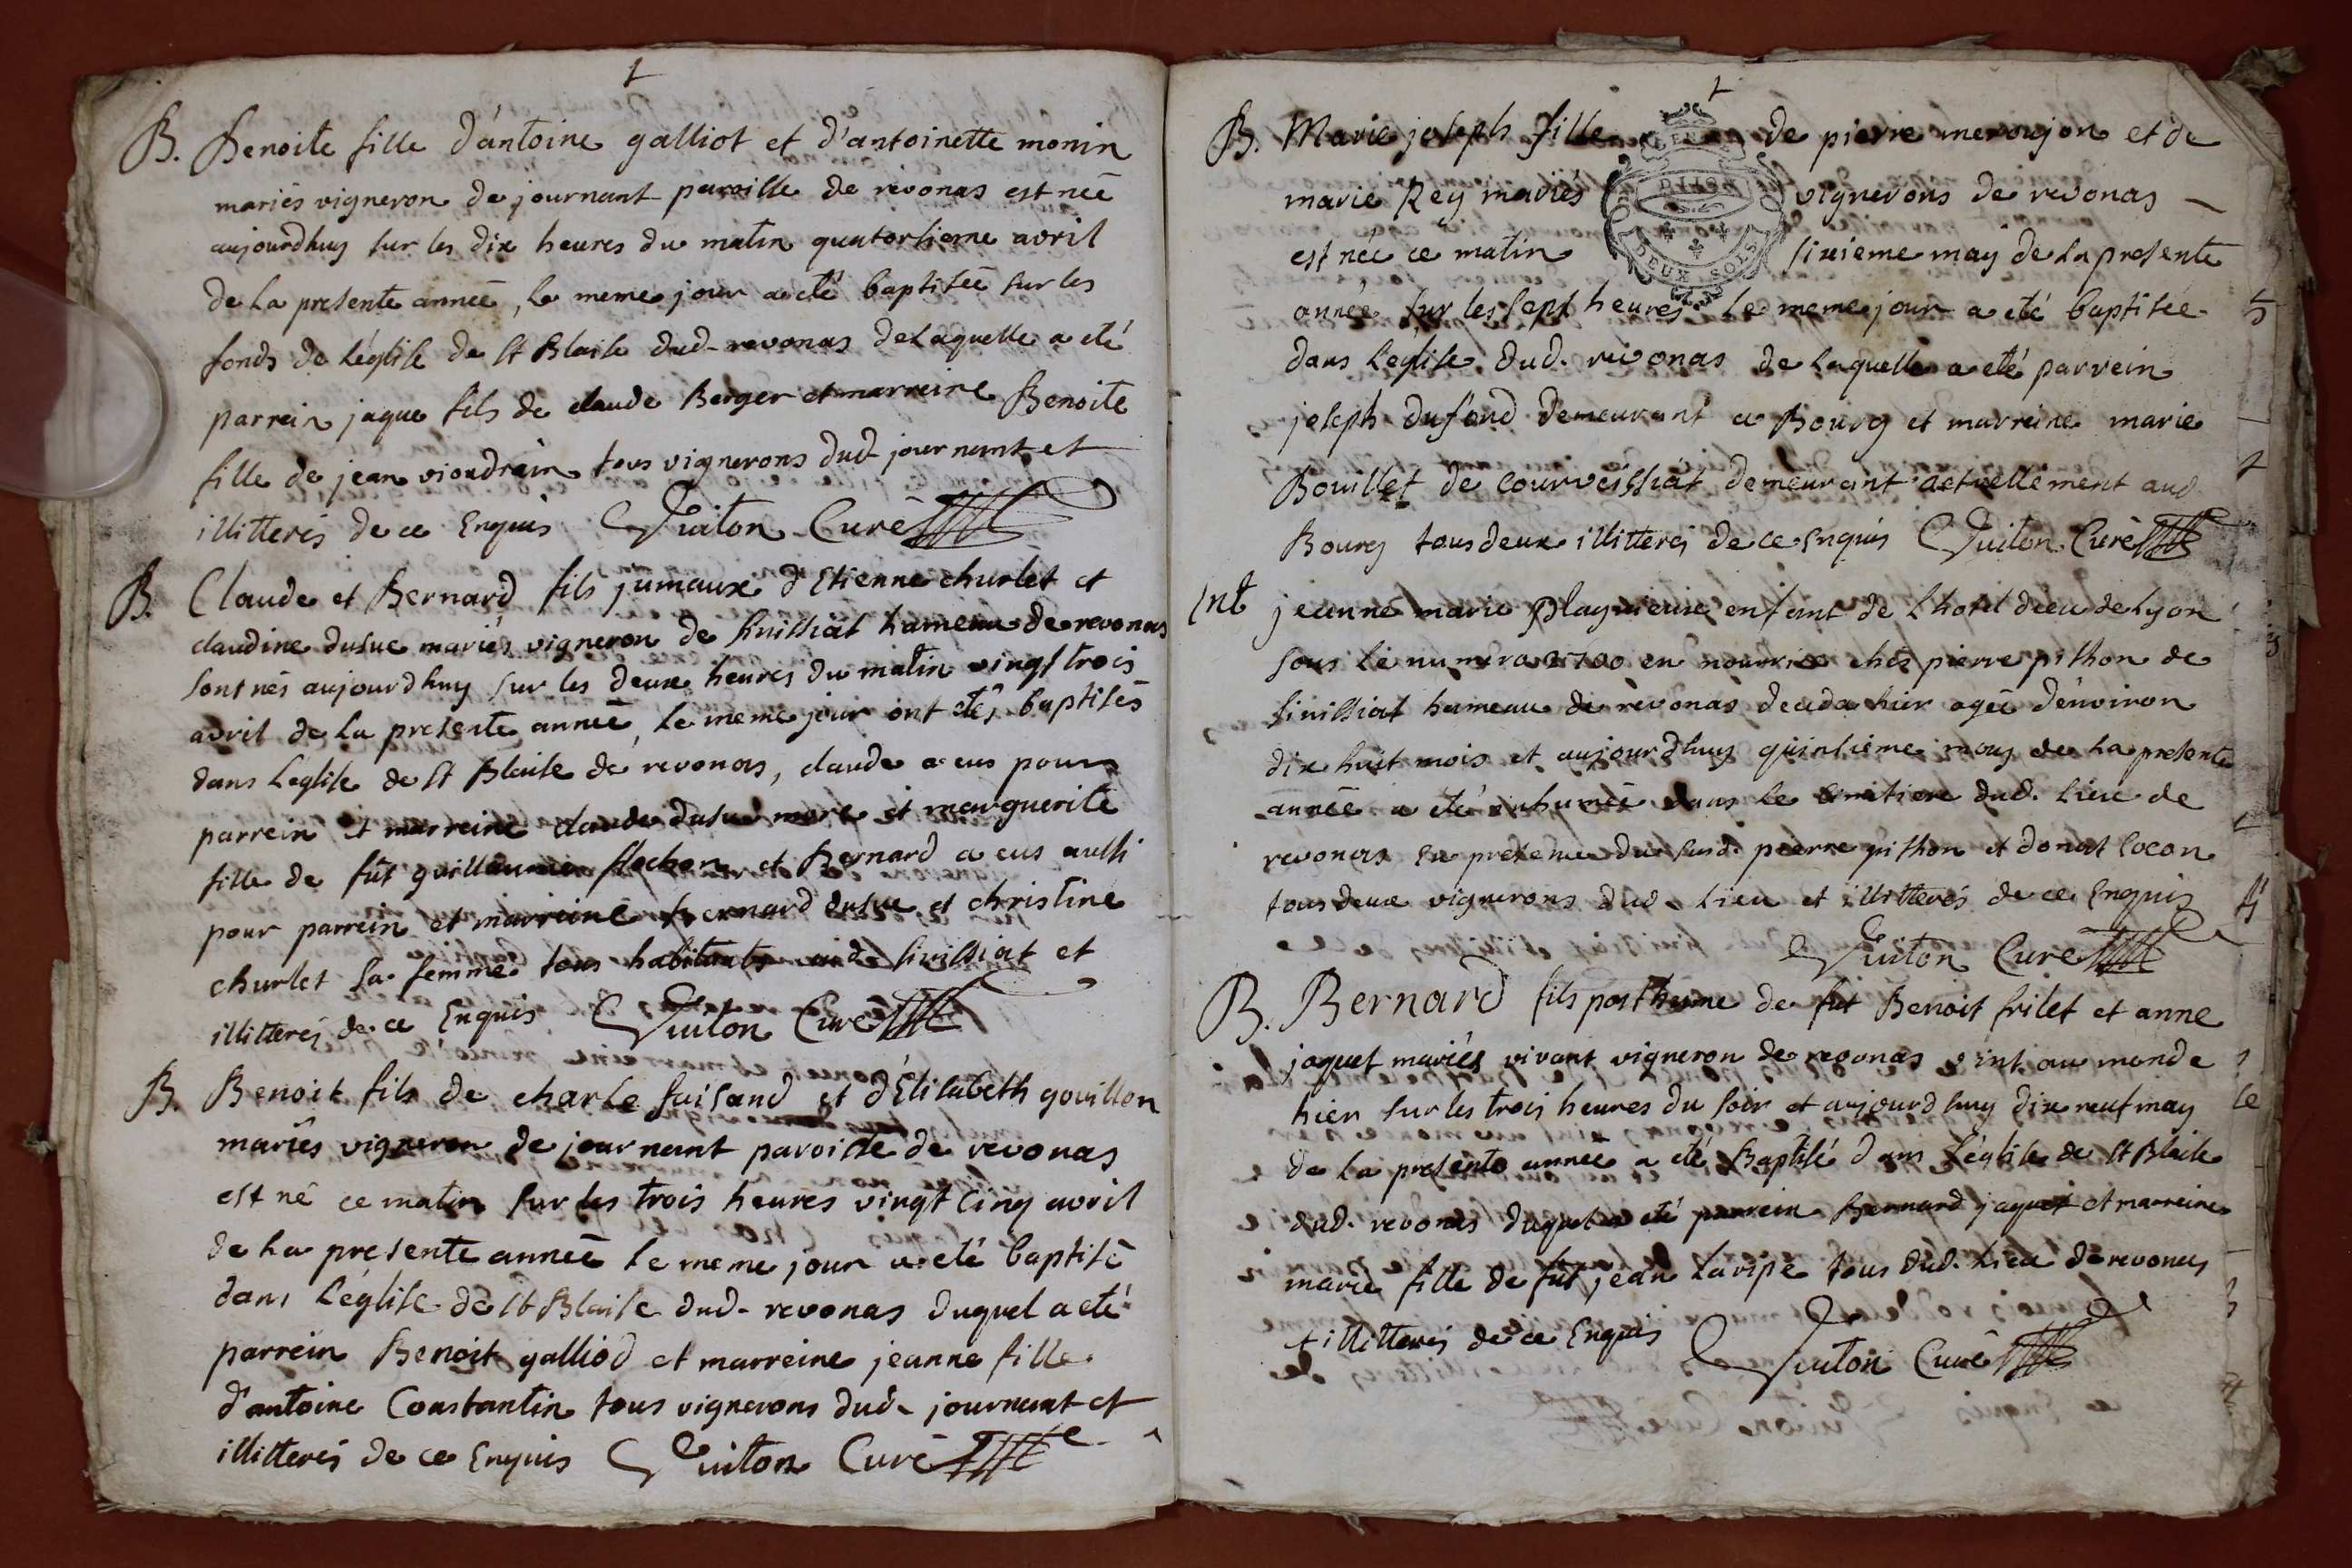 B. Benoite fille d'antoine galliot et d'antoinette monin
mariés vigneron de journant paroisse de revonas est neé
aujourdhuy sur les dix heures du matin quatorsieme avril
de La presente anneé, le meme jour a eté baptiseé sur les
fonds de Léglise de st Blaise dud. revonas de Laquelle a eté
parrein jaque fils de claude Berger et marreine Benoite
fille de jean vioudrein tous vignerons dud journant et
illitterés de ce Enquis Guiton Curé
B. Claude et Bernard fils jumaux d'Etienne churlet et
claudine dusue mariés vigneron de sinissiat hameau de revonas
sont nés aujourdhuy sur les deux heures du matin vingt trois
avril de la presente anneé, le meme jour ont etés baptisés
dans Léglise de st Blaise de revonas, claude a eus pour
parrein et marreine claude dusue et marguerite
fille de fut guillaume flochon et Bernard a eus aussi
pour parrein et marreine Bernard dusue et christine
churlet sa femme tous habitants aud. sinissiat et
illitterés de ce Enquis Guiton Curé
B. Benoit fils de charle faisand et d'Elisabeth gouillon
mariés vigneron de journant paroisse de revonas
est né ce matin sur les trois heures vingt cinq avril
de La presente anneé le meme jour a eté baptisé
dans Léglise de st Blaise dud. revonas duquel a eté
parrein Benoit galliod et marreine jeanne fille
d'antoine Constantin tous vignerons dud. journant et
illitterés de ce Enquis Guiton Curé
B. Marie joseph fille de pierre meroujon et de
marie Rey mariés vignerons de revonas
est neé ce matin sixieme may de La presente
année sur les sept heures Le meme jour a eté baptisée
dans Leglise dud. revonas de Laquelle a eté parrein
joseph dufond demeurant a Bourg et marreine marie
Bouillet de courveissiat demeurant actuellement aud
Bourg tous deux illitterés de ce Enquis Guiton Curé
DEUX SOLS
Int jeanne marie enfant de L'hotel dieu de Lyon
sous le numero en nourrice chés pierre pithon de
sinissiat hameau de revonas deceda hier ageé d'environ
dix huit mois et aujourdhuy quinsieme may de La presente
anneé a eté inhumeé dans le cimitiere dud. Lieu de
revonas en presence du susd. pierre pithon et donat cocon
tous deux vignerons dud. Lieu et illitterés de ce Enquis
Guiton Curé
B. Bernard fils posthume de fut Benoit frilet et anne
jaquet mariés vivant vigneron de revonas vint au monde
hier sur les trois heures du soir et aujourdhuy dix neuf may
de la presente anneé a eté Baptisé dans Léglise de st Blaise
dud. revonas duquel a eté parrein Bernard jaquet et marreine
marie fille de fut jean Laripe tous dud. Lieu de revonas
et illitterés de ce Enquis Guiton Curé